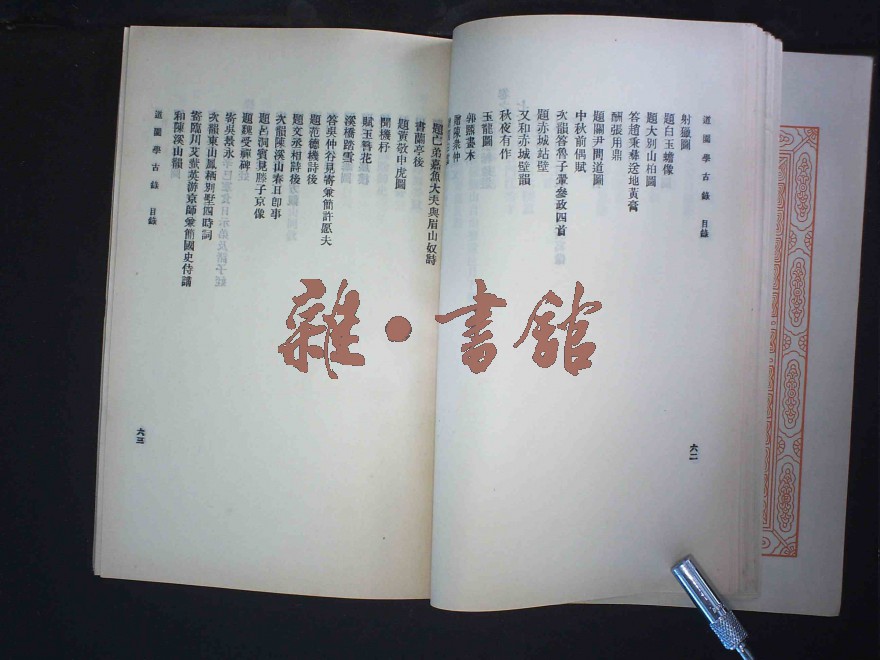 道園學古錄 目錄
射獵圖
題白玉蟾像
題大別山柏圖
答趙秉彝送地黃膏
酬張用鼎
題關尹問道圖
中秋前偶賦
次韻答魯子翬參政四首
題赤城站壁
又和赤城壁韻
秋夜有作
玉龍圖
郭熙畫木
六二
題亡弟嘉魚大夫與眉山奴詩
書蘭亭後
題黃敬申虎圖
聞機杼
賦玉簪花
溪橋踏雪圖
答吳仲谷見寄兼簡許愿夫
題范德機詩後
題文丞相詩後
次韻陳溪山春日卽事
題呂洞賓見滕子京像
題魏受禪碑
寄吳景永
次韻東山鳳栖別墅四時詞
寄臨川艾蜚英游京師兼簡國史侍講
和陳溪山韻
道園學古錄 目錄
六三
雜·書館